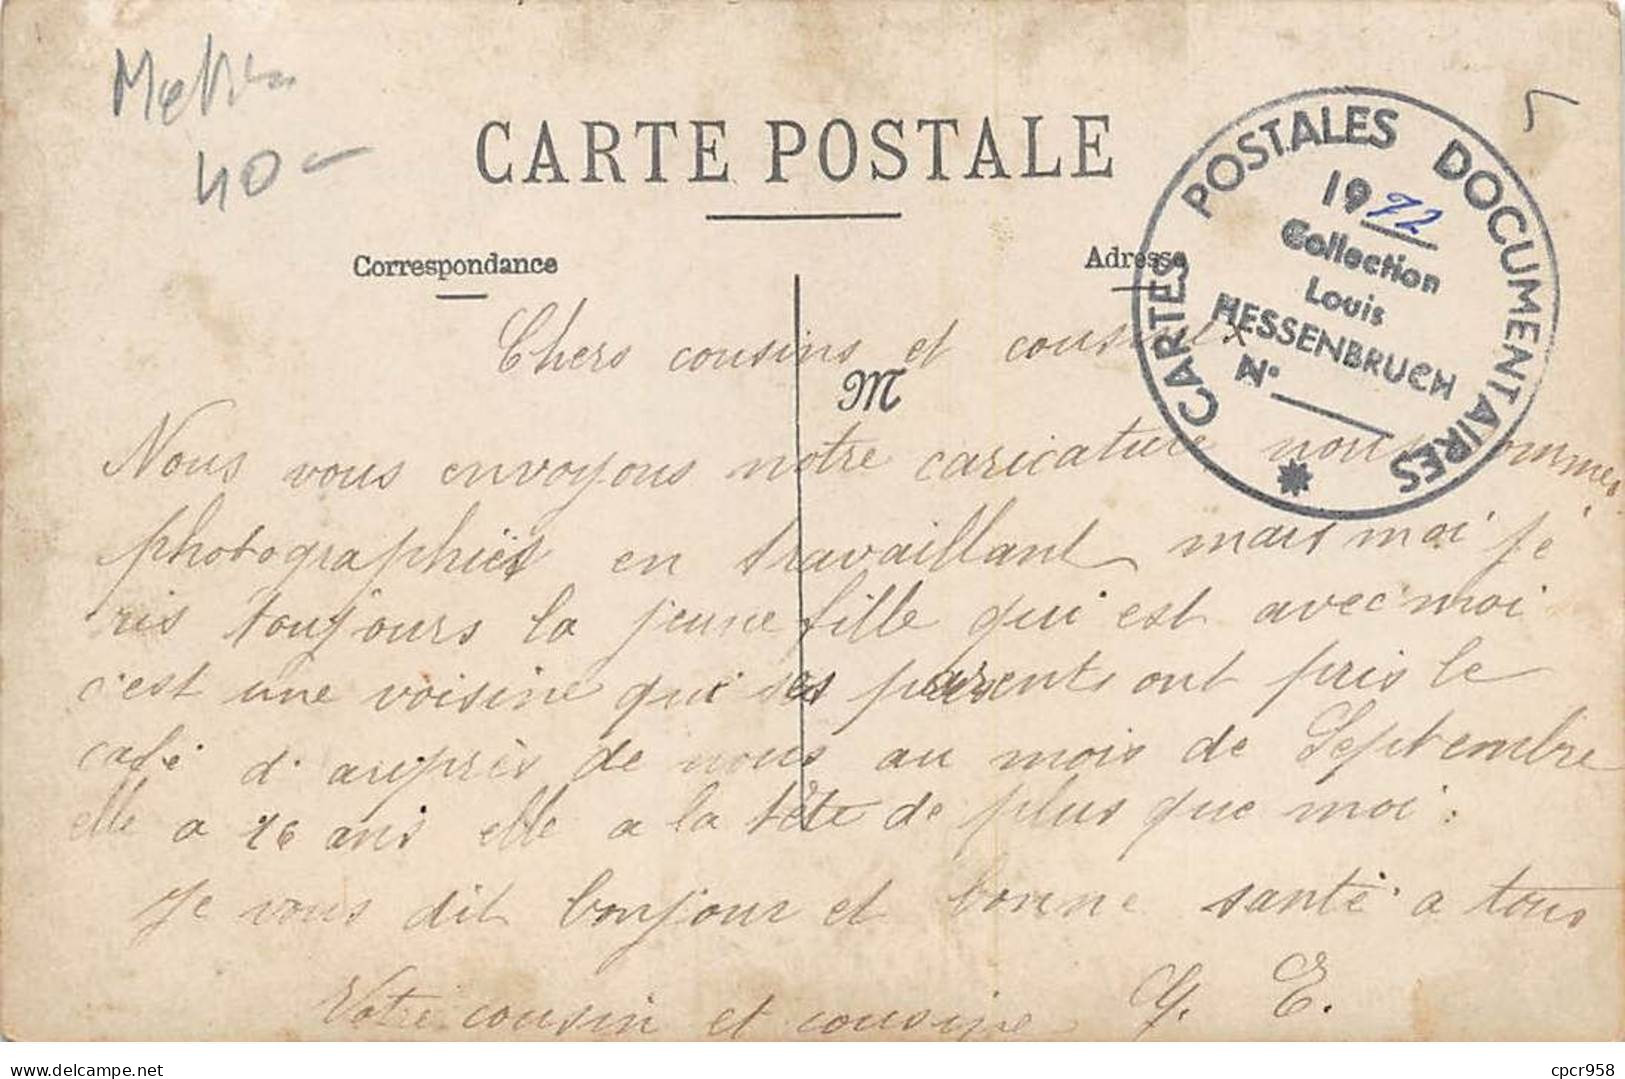 40-
CARTE POSTALE
CARTES POSTALES DOCUMENTAIRES
1972
Collection
Louis
HESSENBRUCH
N°
Correspondance
Adresse
M
Chers cousins et
Nous vous envoyons notre caricature nous sommes
photographiés en travaillant mais moi je
ris toujours la jeune fille qui est avec moi
c'est une voisine qui ses parents ont pris le
café d'auprès de nous au mois de Septembre
elle a 16 ans elle a la tête de plus que moi.
Je vous dit bonjour et bonne santé a tous
Votre cousin et cousine Y. E.
delcampe.net
cpcr958